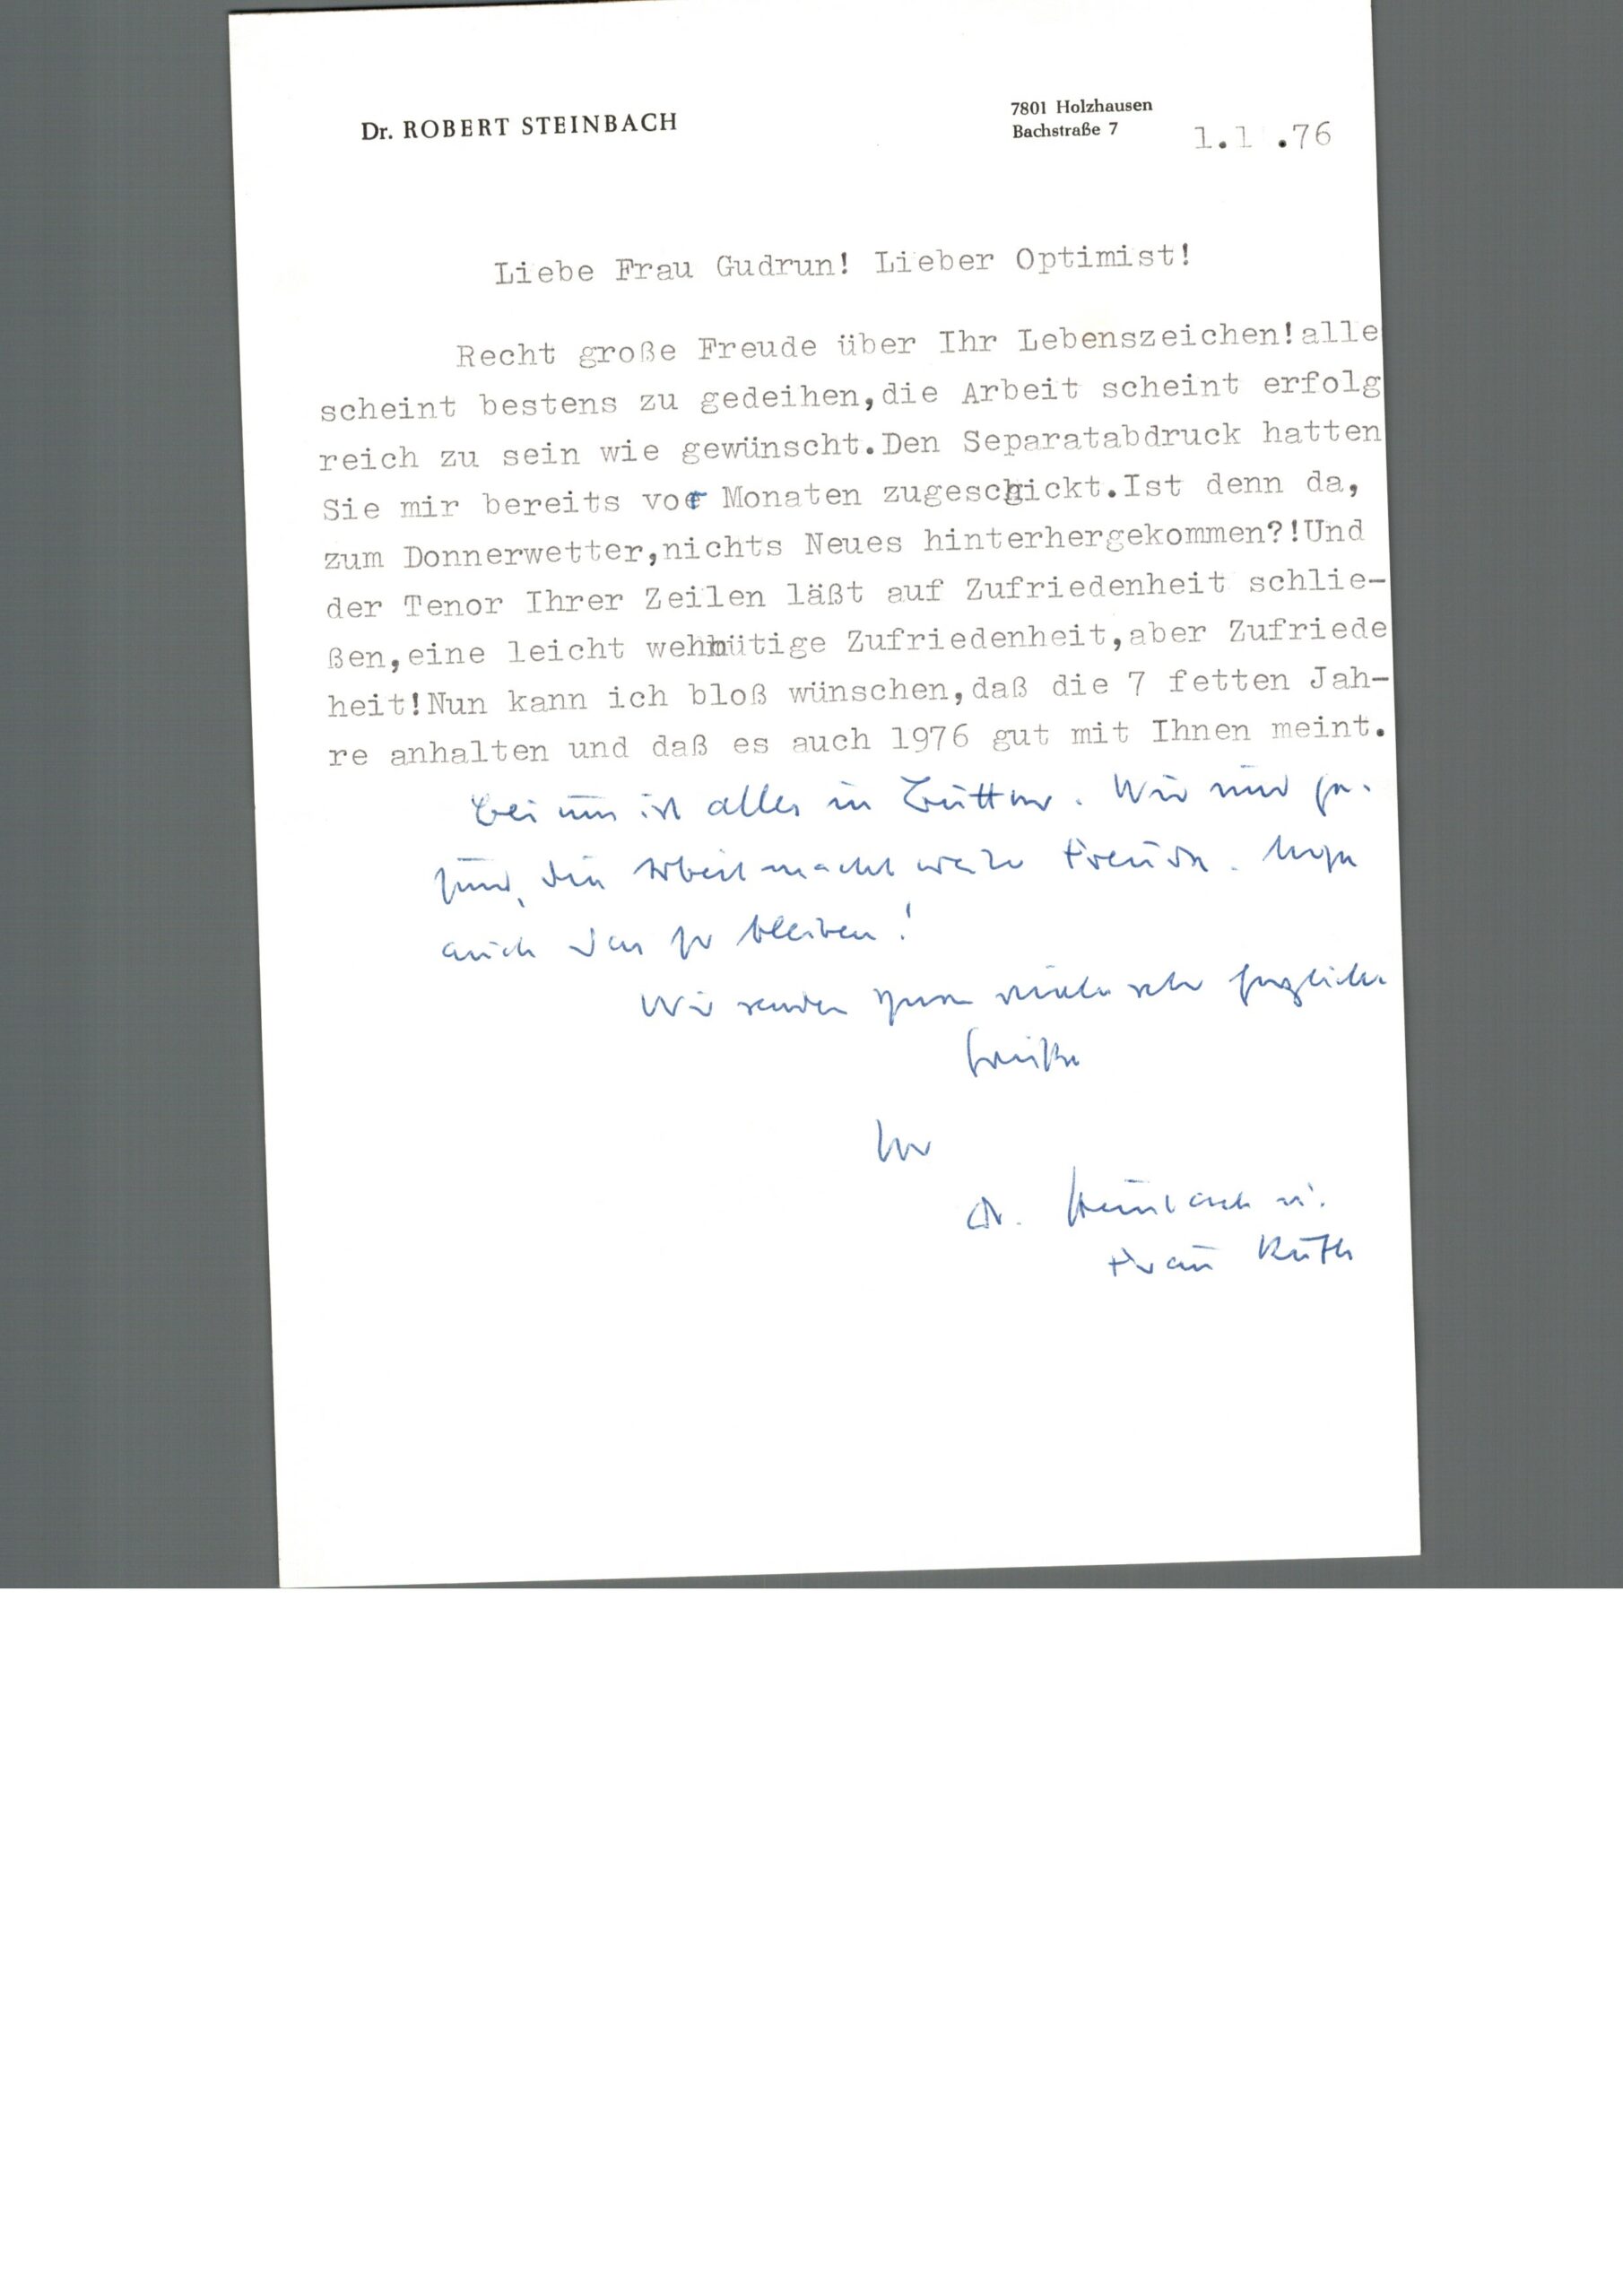 Dr. ROBERT STEINBACH
7801 Holzhausen
Bachstraße 7
1.1 .76
Liebe Frau Gudrun! Lieber Optimist!
Recht große Freude über Ihr Lebenszeichen!alle
scheint bestens zu gedeihen,die Arbeit scheint erfolg
reich zu sein wie gewünscht.Den Separatabdruck hatten
Sie mir bereits vor Monaten zugeschickt.Ist denn da,
zum Donnerwetter,nichts Neues hinterhergekommen?!Und
der Tenor Ihrer Zeilen läßt auf Zufriedenheit schlie-
ßen,eine leicht wehmütige Zufriedenheit,aber Zufriede
heit!Nun kann ich bloß wünschen,daß die 7 fetten Jah-
re anhalten und daß es auch 1976 gut mit Ihnen meint.
Bei uns ist alles in Butter. Wir sind ge-
sund, die Arbeit macht Freude.
auch das so bleiben!
Wir senden Ihnen sehr herzliche
Grüße
Ihr
Dr. Steinbach u.
Frau Ruth